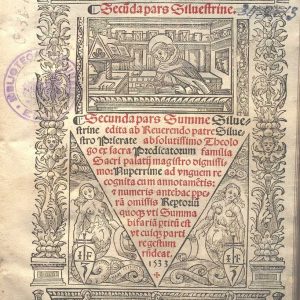 Secūda pars Siluestrine.
Secunda pars Summe Silue
strine edita ab Reuerendo patre Silue
stro Prierate absolutissimo Theolo
go ex sacra Predicatorum familia
Sacri palatij magistro dignissi
mo: Nuperrime ad vnguem re
cognita cum annotamētis,
z numeris antehac ppe-
rā omissis Reptoriū
quoqz vti Summa
bifariā ptitū est
vt cuiqz parti
regestum
rñdeat.
1533
BIBLIOTECA
I F
I F